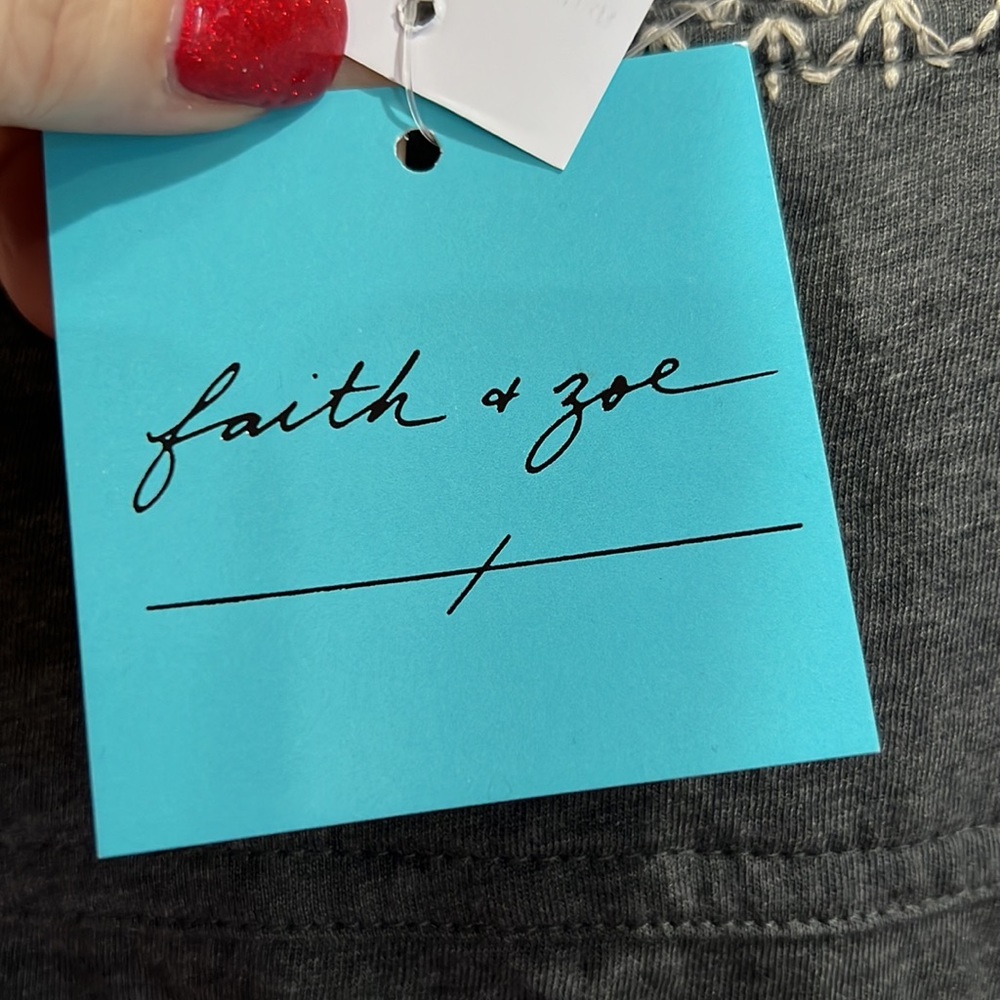 faith & zoe